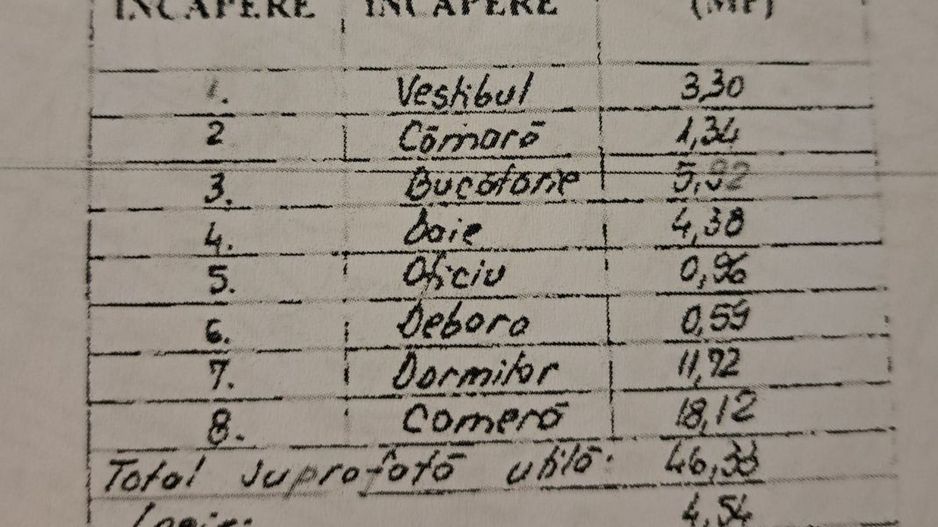 INCAPERE INCAPERE (MP)
1. Vestibul 3,30
2 Cămară 1,34
3. Bucătarie 5,92
4. baie 4,38
5. Oficiu 0,96
6. Debara 0,59
7. Dormitor 11,72
8. Cameră 18,12
Total suprafață utilă: 46,33
4,54